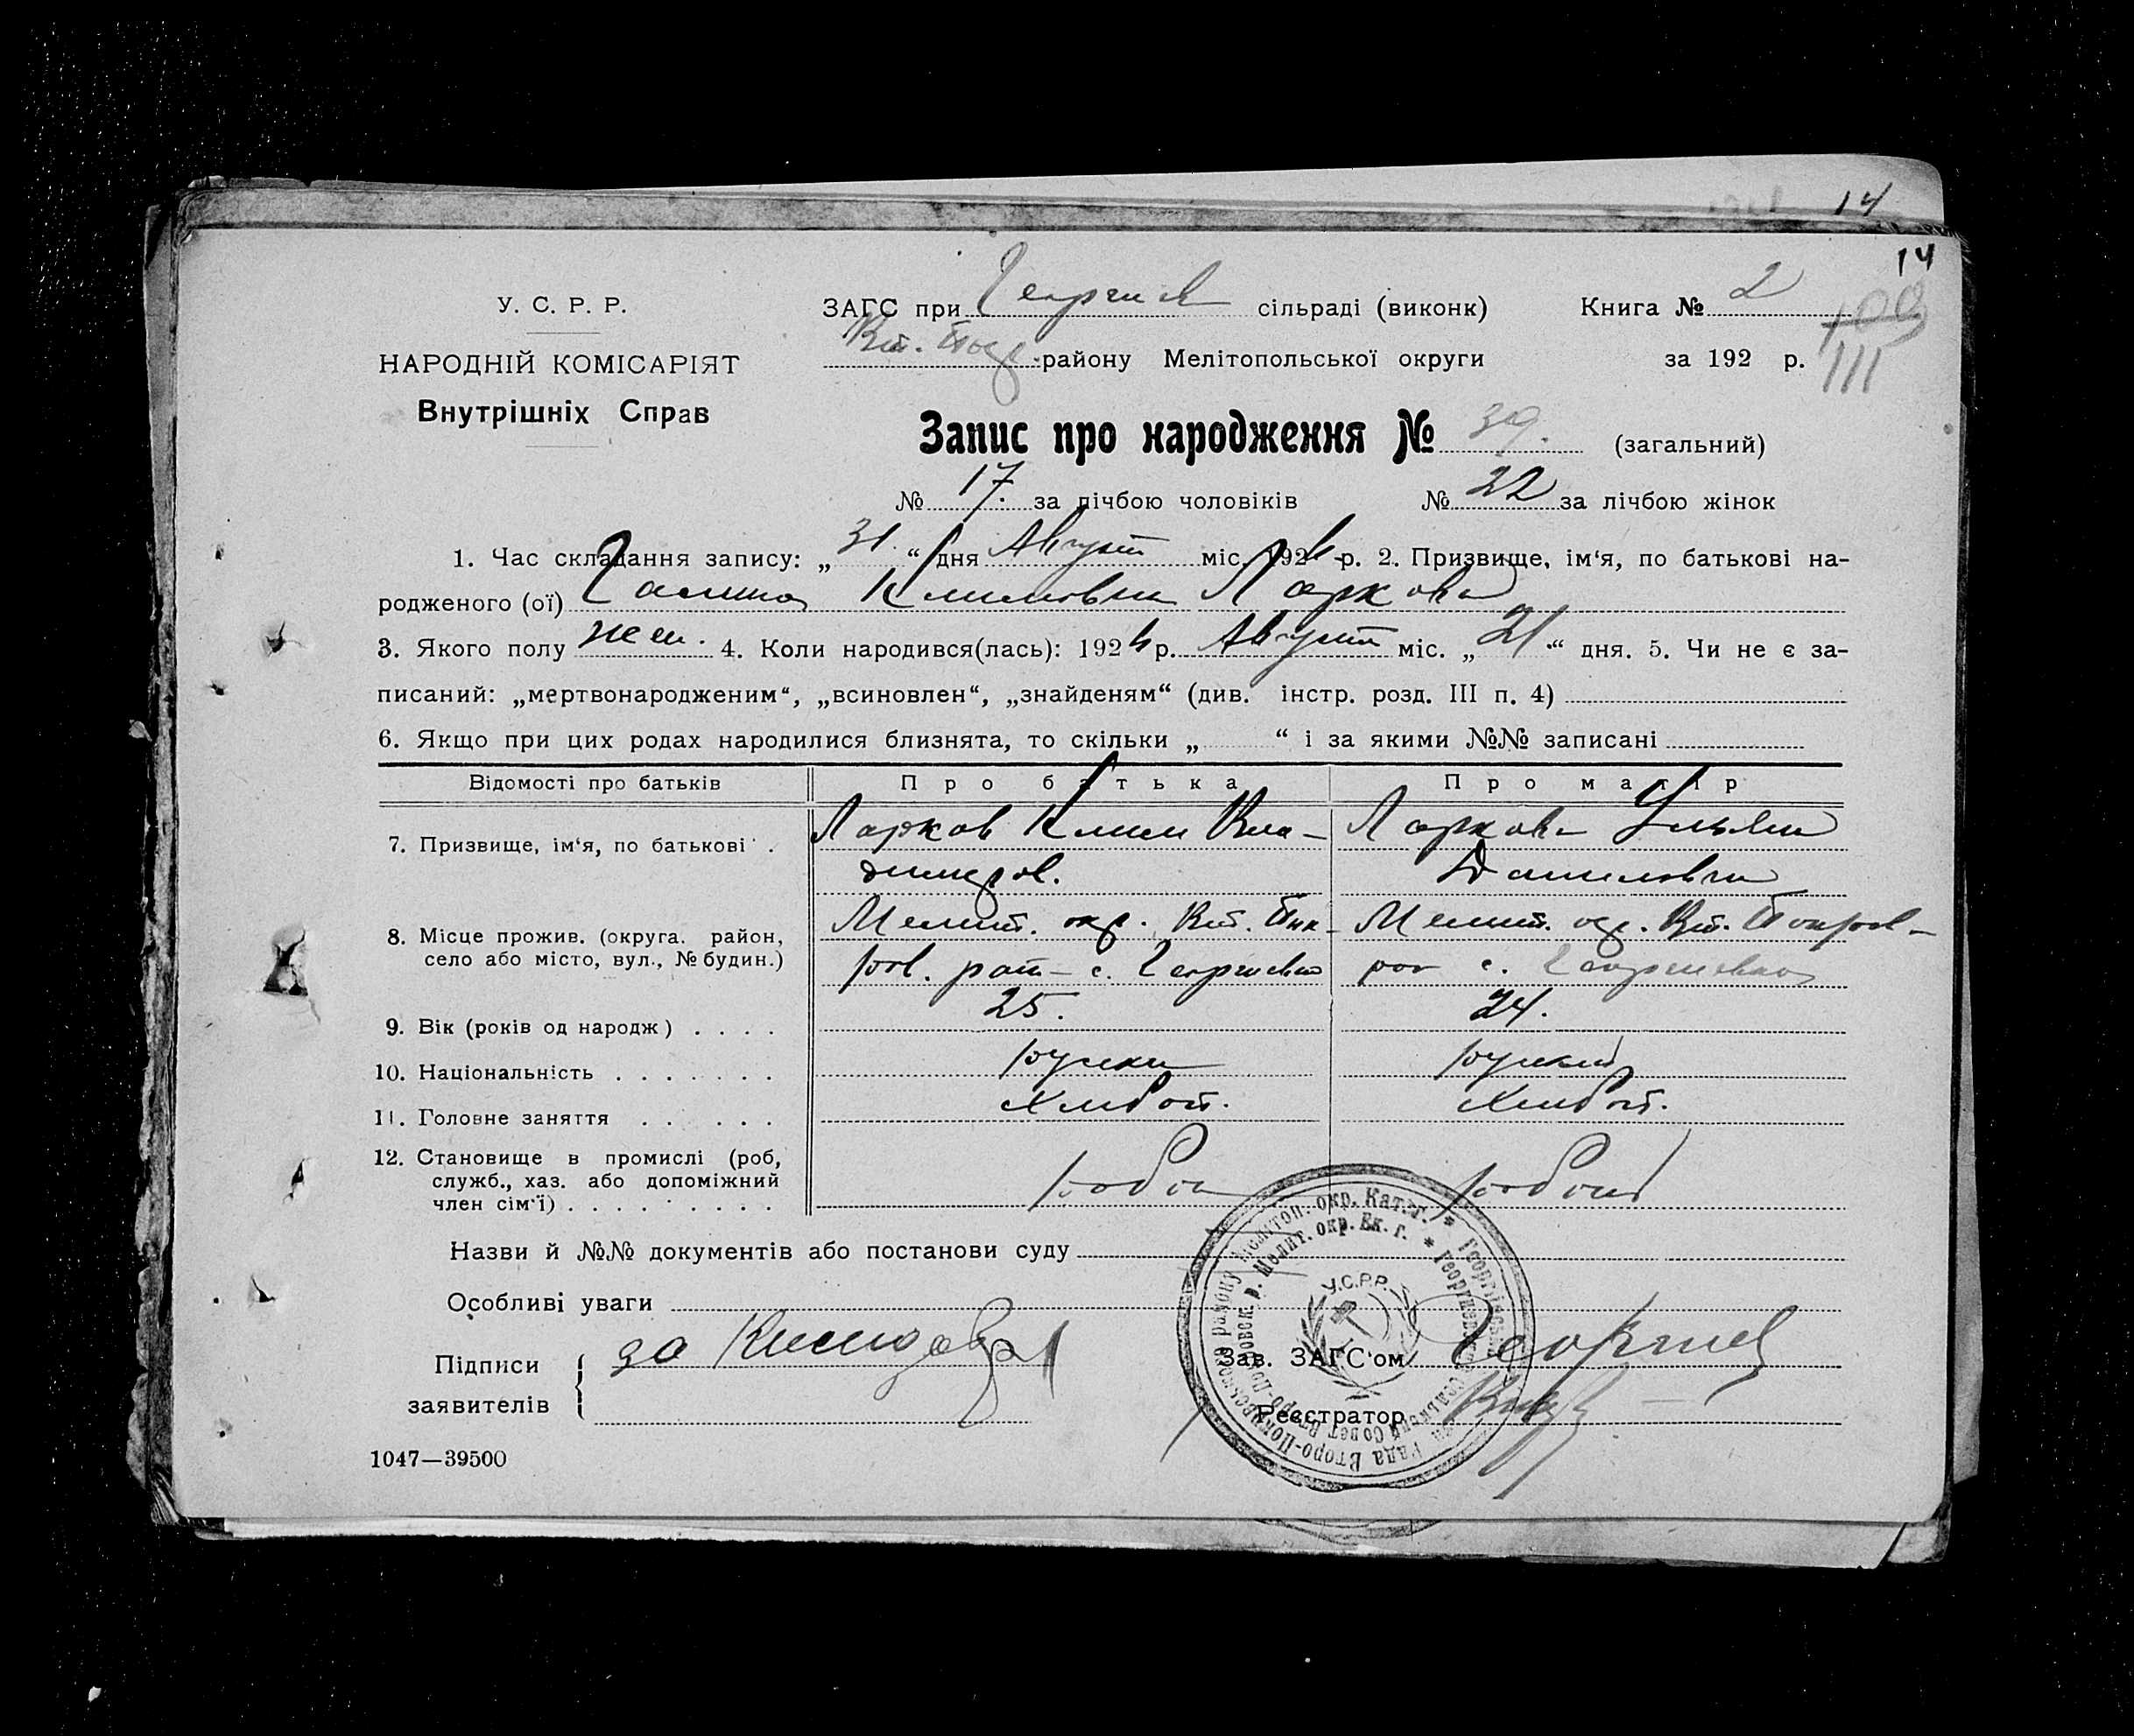 14
14
У. С. Р. Р.
НАРОДНІЙ КОМІСАРІЯТ
Внутрішніх Справ
ЗАГС при Георгиев сільраді (виконк) Книга № 2
Вт. Покр. району Мелітопольської округи за 192 р.
109
111
Запис про народження № 39. (загальний)
№ 17. за лічбою чоловіків № 22 за лічбою жінок
1. Час складання запису: „31“ дня Август міс. 1924 р. 2. Призвище, ім‘я, по батькові на-
родженого (ої) Галина Климовна Ларкова
3. Якого полу жен. 4. Коли народився(лась): 1924 р. Август міс. „21“ дня. 5. Чи не є за-
писаний: „мертвонародженим“, „всиновлен“, „знайденям“ (див. інстр. розд. III п. 4)
6. Якщо при цих родах народилися близнята, то скільки „ “ і за якими №№ записані
Відомості про батьків Про батька Про матір
7. Призвище, ім‘я, по батькові . Ларков Клим Вла- Ларкова Ульяна
димиров. Даниловна
8. Місце прожив. (округа. район, Мелит. окр. Вт. Пок- Мелит. окр. Вт. Покров-
село або місто, вул., № будин.) ров. с. Георгиевка с. Георгиевка
9. Вік (років од народж) . . . . 25. 24.
10. Національність . . . . . . . Руская
11. Головне заняття . . . . . . Хлебоп. Хлебоп.
12. Становище в промислі (роб,
служб., хаз. або допоміжний
член сім‘ї) . . . . . . . . .
Назви й №№ документів або постанови суду
Особливі уваги
Підписи
заявителів
за
Зав. ЗАГС‘ом Георгиев
Реєстратор
У.С.Р.Р.
1047—39500